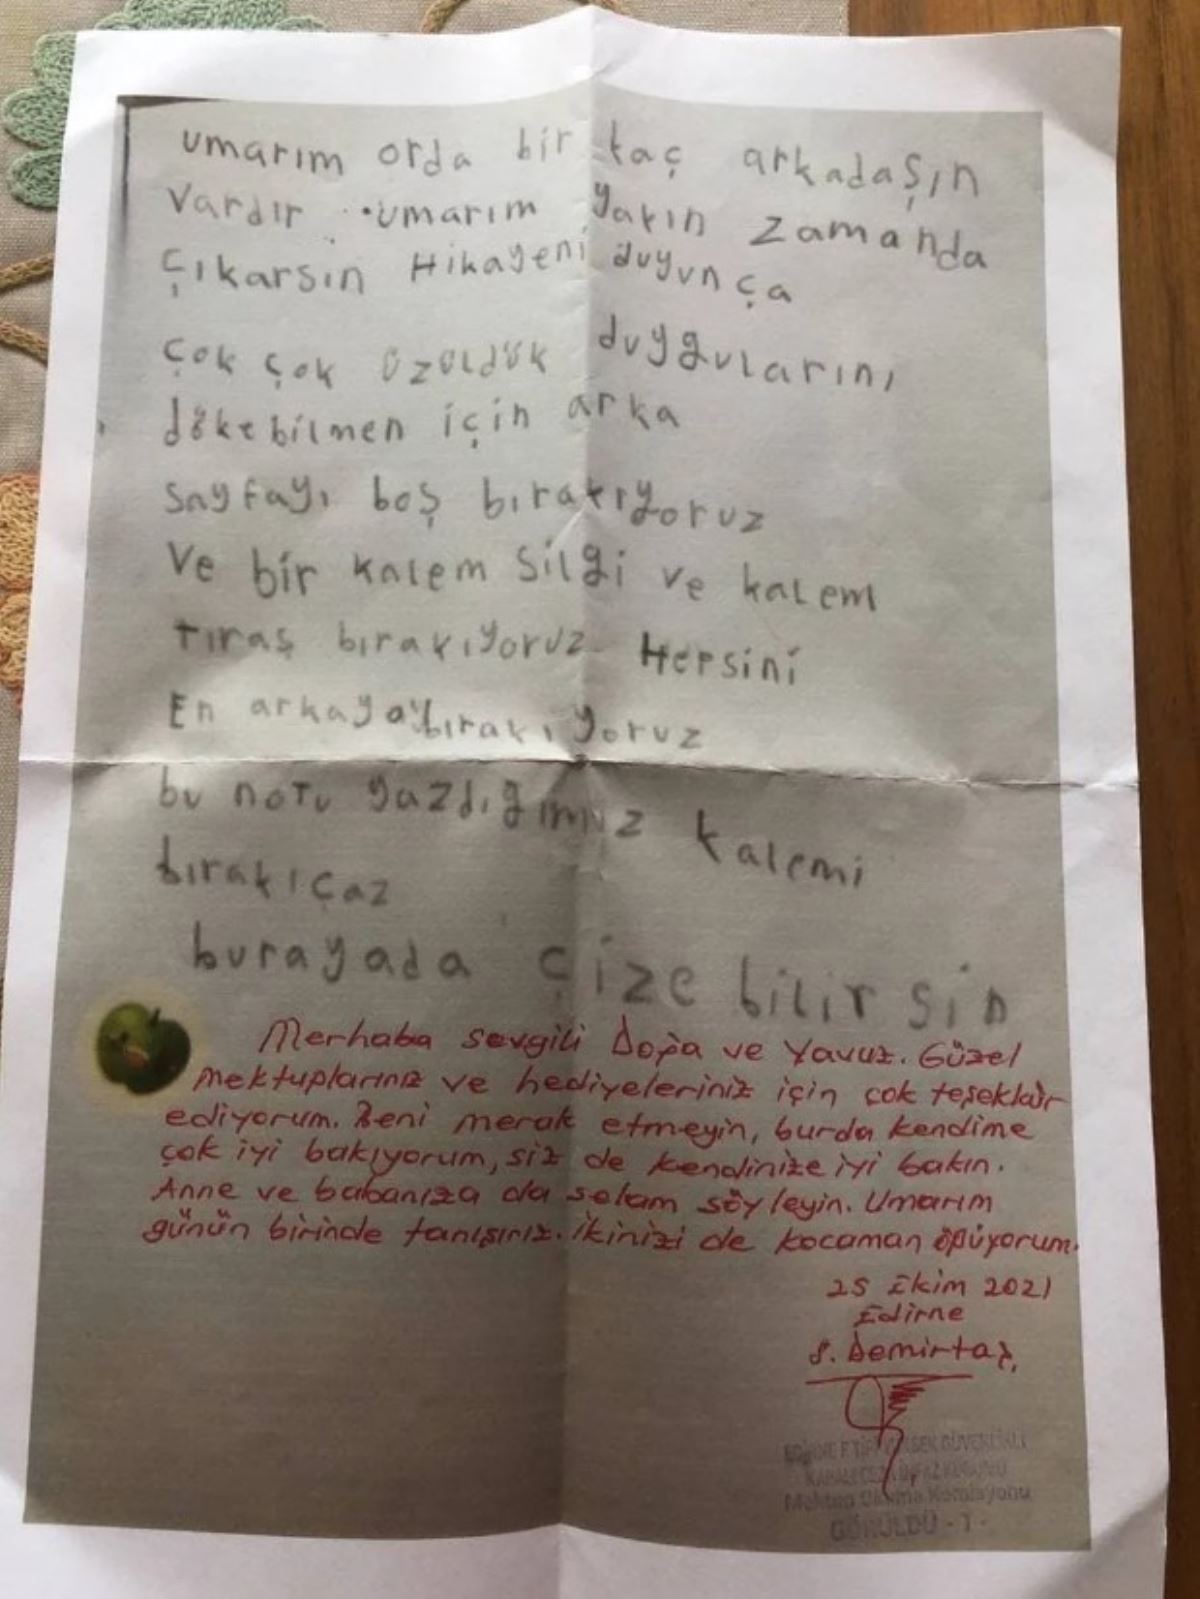 umarım orda bir kaç arkadaşın
vardır umarım yakın zamanda
çıkarsın Hikayeni duyunça
çok çok üzüldük duygularını
dökebilmen için arka
sayfayı boş bırakıyoruz
ve bir kalem silgi ve kalem
tıraş bırakıyoruz Hepsini
En arkaya bırakıyoruz
bu notu yazdığımız kalemi
bırakıçaz
burayada çize bilirsin
Merhaba sevgili Doğa ve Yavuz. Güzel
mektuplarınız ve hediyeleriniz için çok teşekkür
ediyorum. Beni merak etmeyin, burda kendime
çok iyi bakıyorum, siz de kendinize iyi bakın.
Anne ve babanıza da selam söyleyin. Umarım
günün birinde tanışırız. İkinizi de kocaman öpüyorum.
25 Ekim 2021
Edirne
S. Demirtaş
EDİRNE F TİPİ YÜKSEK GÜVENLİKLİ
KAPALI CEZA İNFAZ KURUMU
Mektup Okuma Komisyonu
GÖRÜLDÜ - 1 -